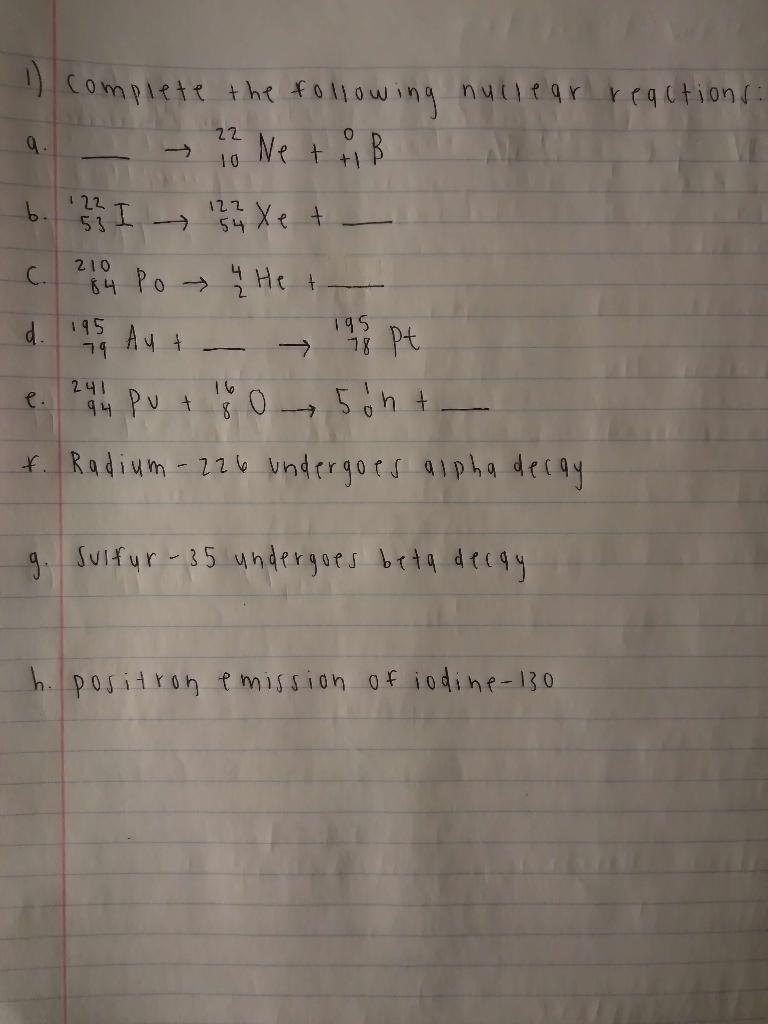 1) Complete the following nuclear reactions:
a. __ → ²²₁₀ Ne + ⁰₊₁ β
b. ¹²²₅₃ I → ¹²²₅₄ Xe + __
c. ²¹⁰₈₄ Po → ⁴₂ He + __
d. ¹⁹⁵₇₉ Au + __ → ¹⁹⁵₇₈ Pt
e. ²⁴¹₉₄ Pu + ¹⁶₈ O → 5 ¹₀ n + __
f. Radium - 226 undergoes alpha decay
g. Sulfur - 35 undergoes beta decay
h. positron emission of iodine - 130